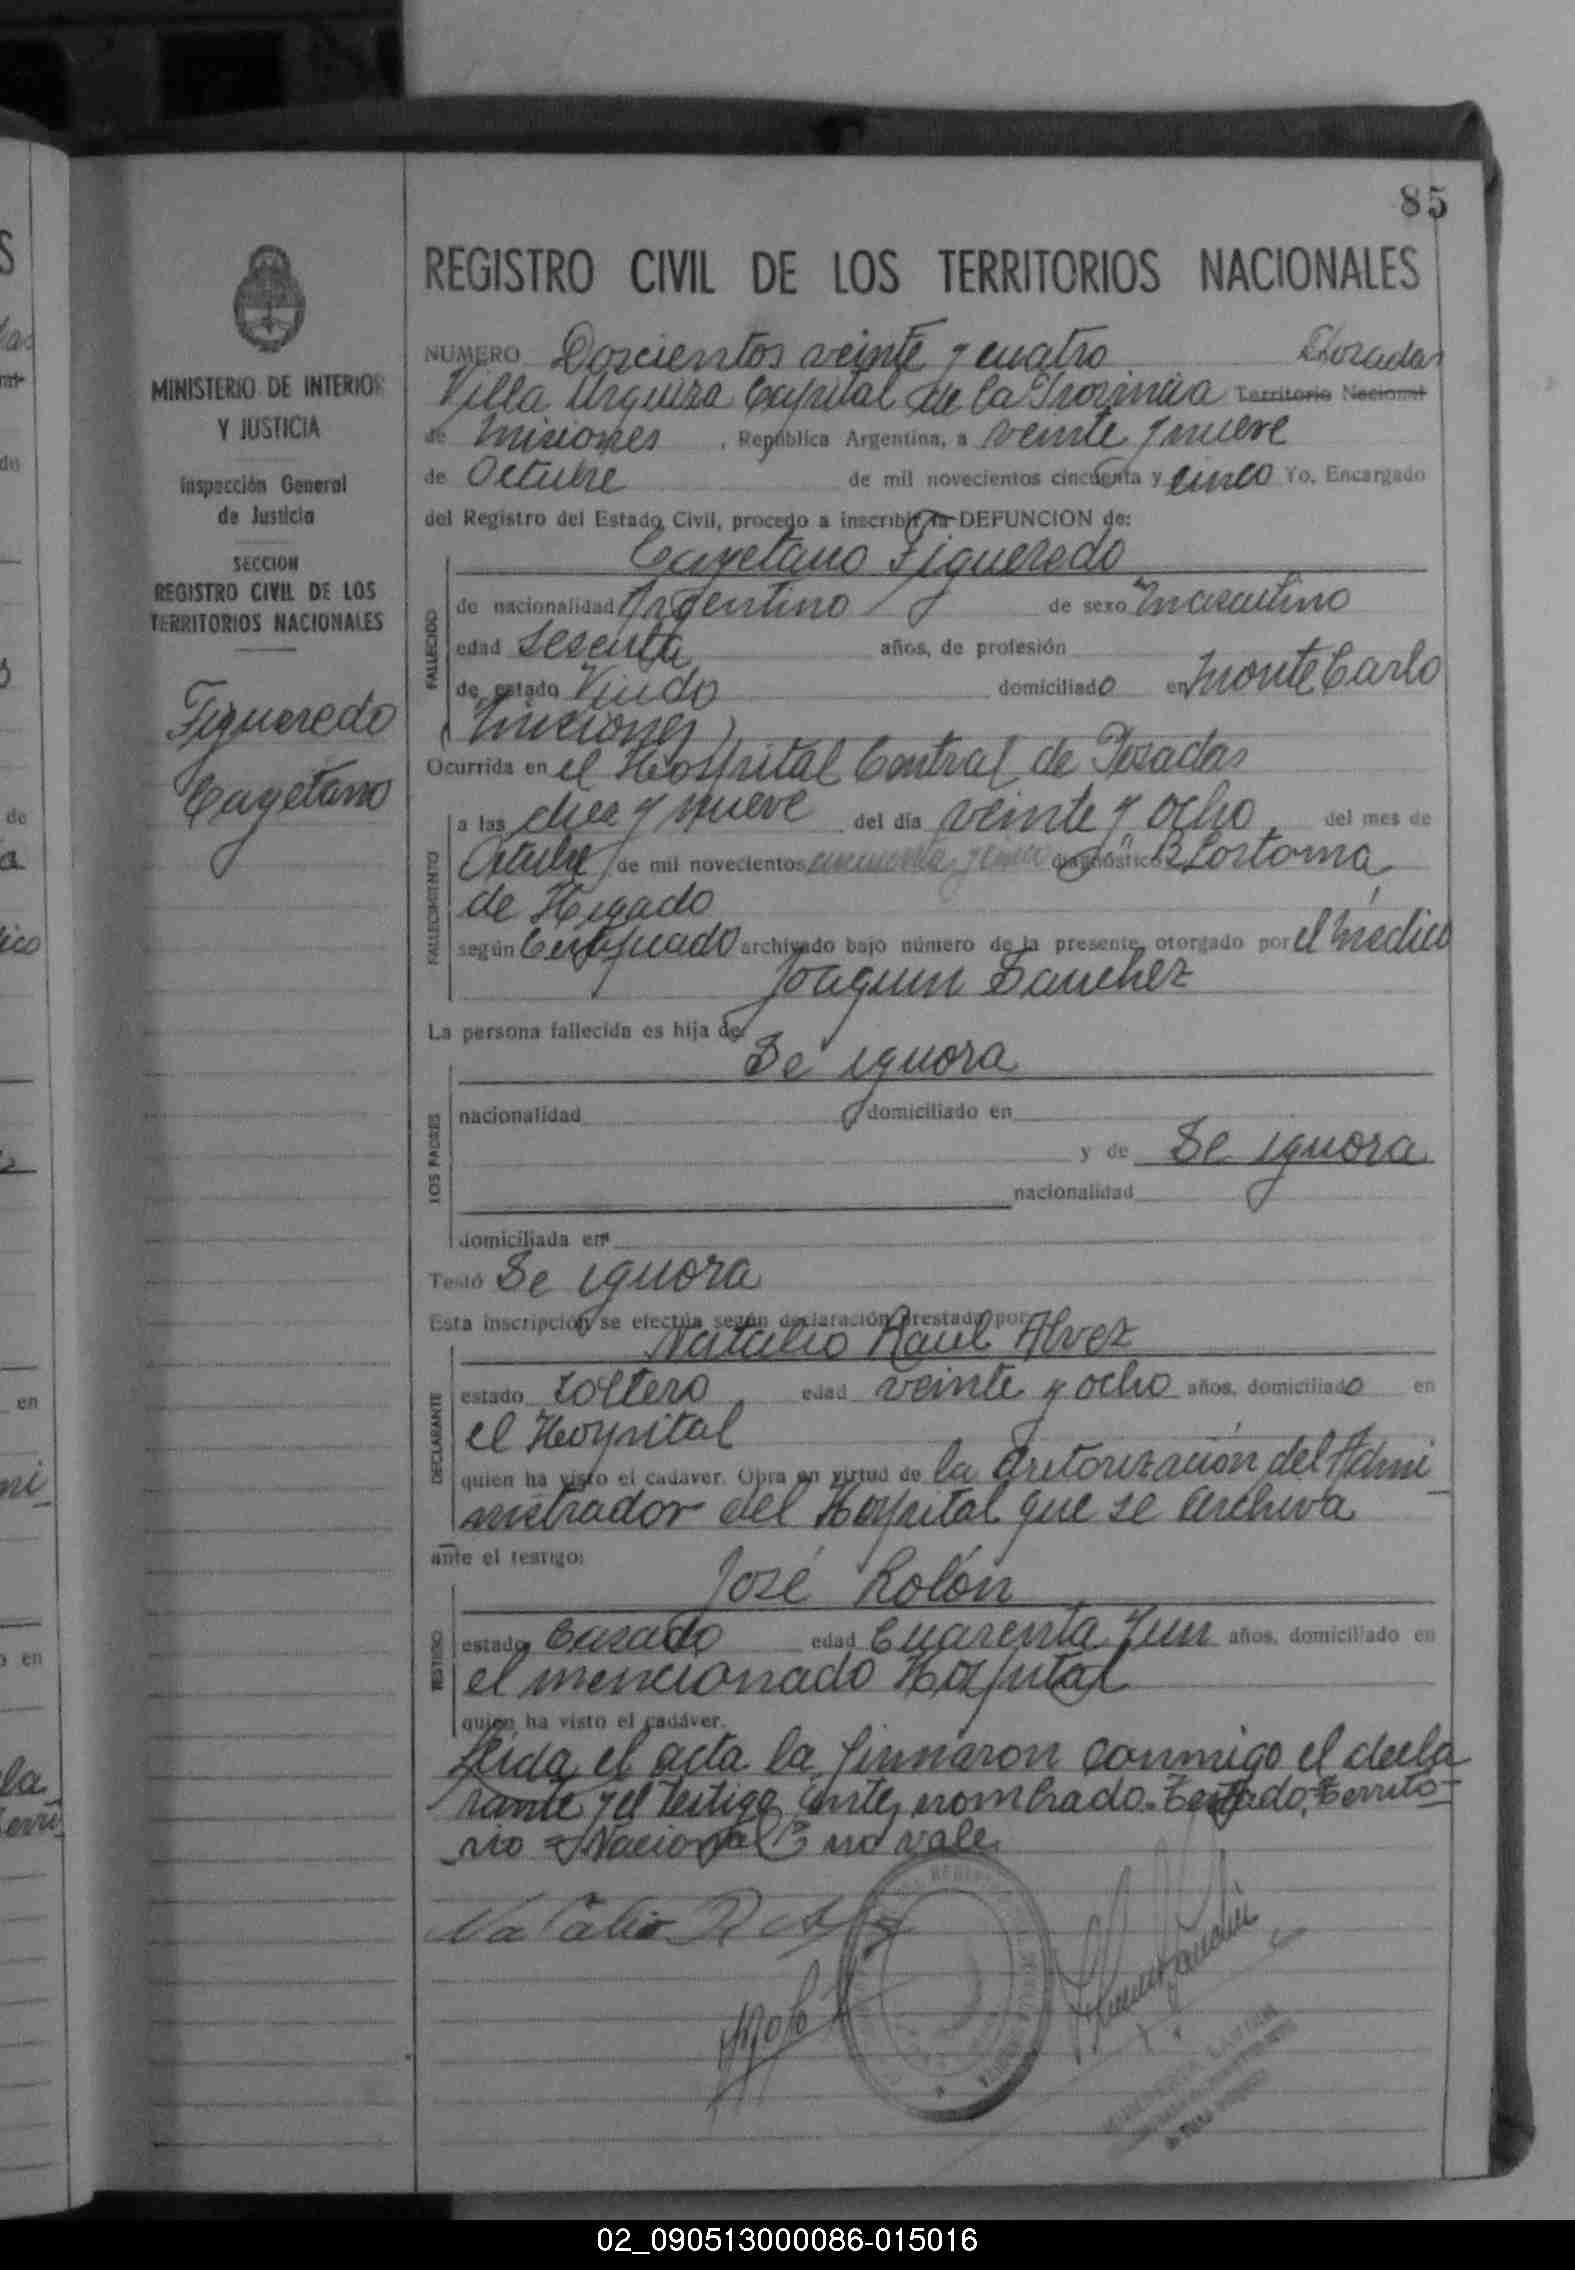 85
REGISTRO CIVIL DE LOS TERRITORIOS NACIONALES
MINISTERIO DE INTERIOR
Y JUSTICIA
Inspección General
de Justicia
SECCION
REGISTRO CIVIL DE LOS
TERRITORIOS NACIONALES
Figueredo
Cayetano
NUMERO Doscientos veinte y cuatro Posadas
Villa Urquiza Capital de la Provincia Territorio Nacional
de Misiones, República Argentina, a veinte y nueve
de Octubre de mil novecientos cincuenta y cinco Yo, Encargado
del Registro del Estado Civil, procedo a inscribir la DEFUNCION de:
Cayetano Figueredo
FALLECIDO
de nacionalidad Argentino de sexo masculino
edad Sesenta años, de profesión
de estado Viudo domiciliado en Monte Carlo
(Misiones)
Ocurrida en el Hospital Central de Posadas
FALLECIMIENTO
a las diez y nueve del día veinte y ocho del mes de
Octubre de mil novecientos cincuenta y cinco diagnóstico Blastoma
de Higado
según Certificado archivado bajo número de la presente, otorgado por el médico
Joaquin Sanchez
La persona fallecida es hija de
Se ignora
LOS PADRES
nacionalidad domiciliado en
y de Se ignora
nacionalidad
domiciliada en
Testó Se ignora
Esta inscripción se efectúa según declaración prestada por
Natalio Raul Alvez
DECLARANTE
estado Soltero edad veinte y ocho años, domiciliado en
el Hospital
quien ha visto el cadáver. Obra en virtud de la autorización del Admi
nistrador del Hospital que se archiva
ante el testigo:
José Rolón
TESTIGO
estado Casado edad Cuarenta y un años, domiciliado en
el mencionado Hospital
quien ha visto el cadáver.
Leida el acta la firmaron conmigo el decla
rante y el testigo antes nombrado. Testado, Territo-
rio = Nacional no vale
Natalio R Alvez
02_090513000086-015016